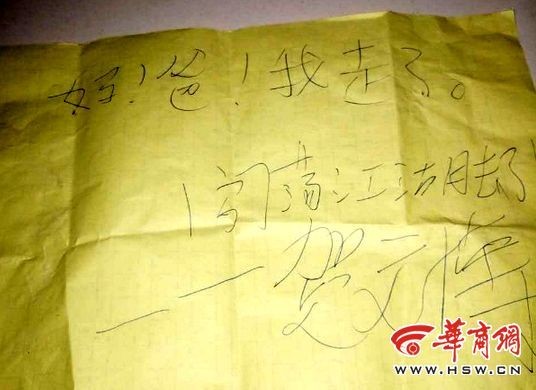 好！爸！我走了。
闯荡江湖去了！
——贺
华商网
WWW.HSW.CN